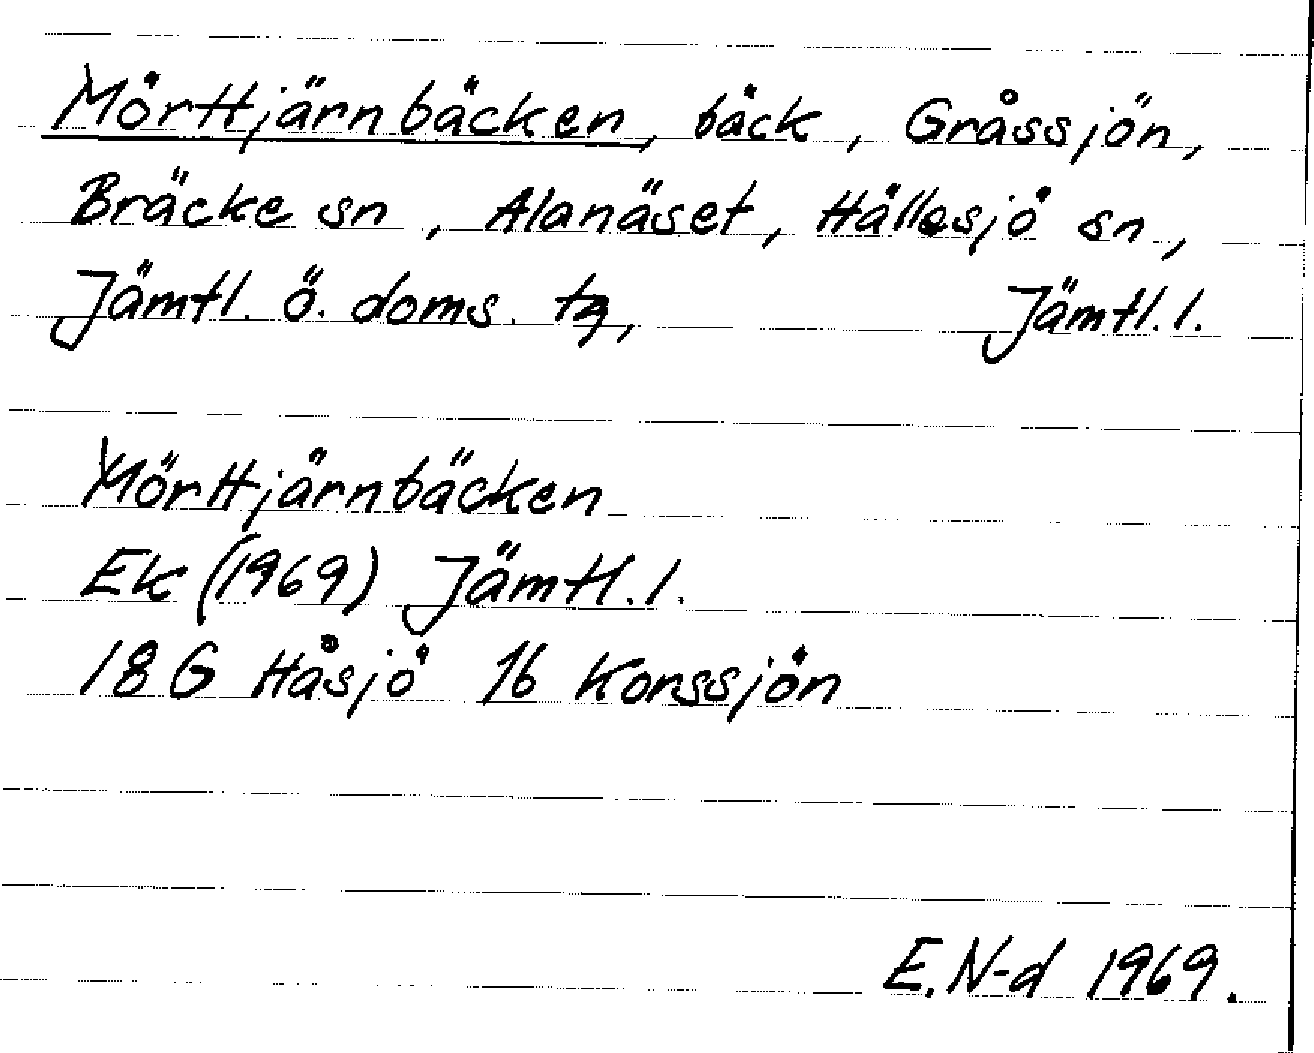 Mörttjärnbäcken, bäck, Gråssjön,
Bräcke sn, Alanäset, Hällesjö sn,
Jämtl. ö. doms. tg, Jämtl.l.
Mörttjärnbäcken
Ek (1969) Jämtl.l.
18G Håsjö 1b Korssjön
E.N-d 1969.